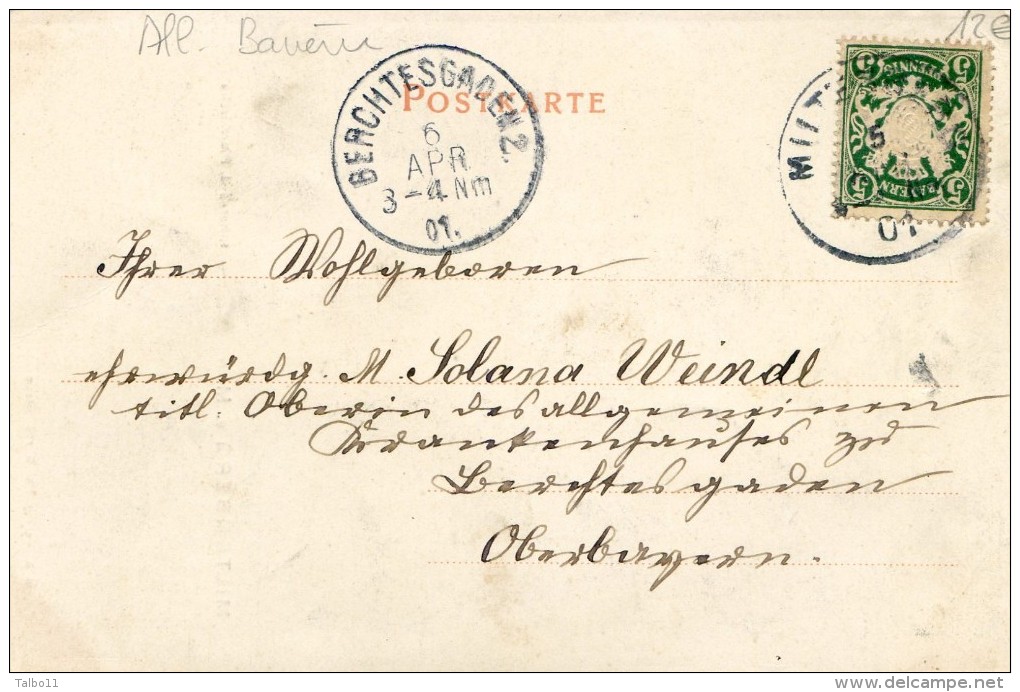 All. Bauern 12€
BERCHTESGADEN 2.
6
APR
3-4 Nm
01.
POSTKARTE
PFENNIG
5 5
BAYERN
5 5
5
01
Ihrer Wohlgeboren
ehrwürdg. M. Solana Weindl
titl. Oberin des allgemeinen
Krankenhauses zu
Berchtesgaden
Oberbayern.
Talbo11
delcampe.net